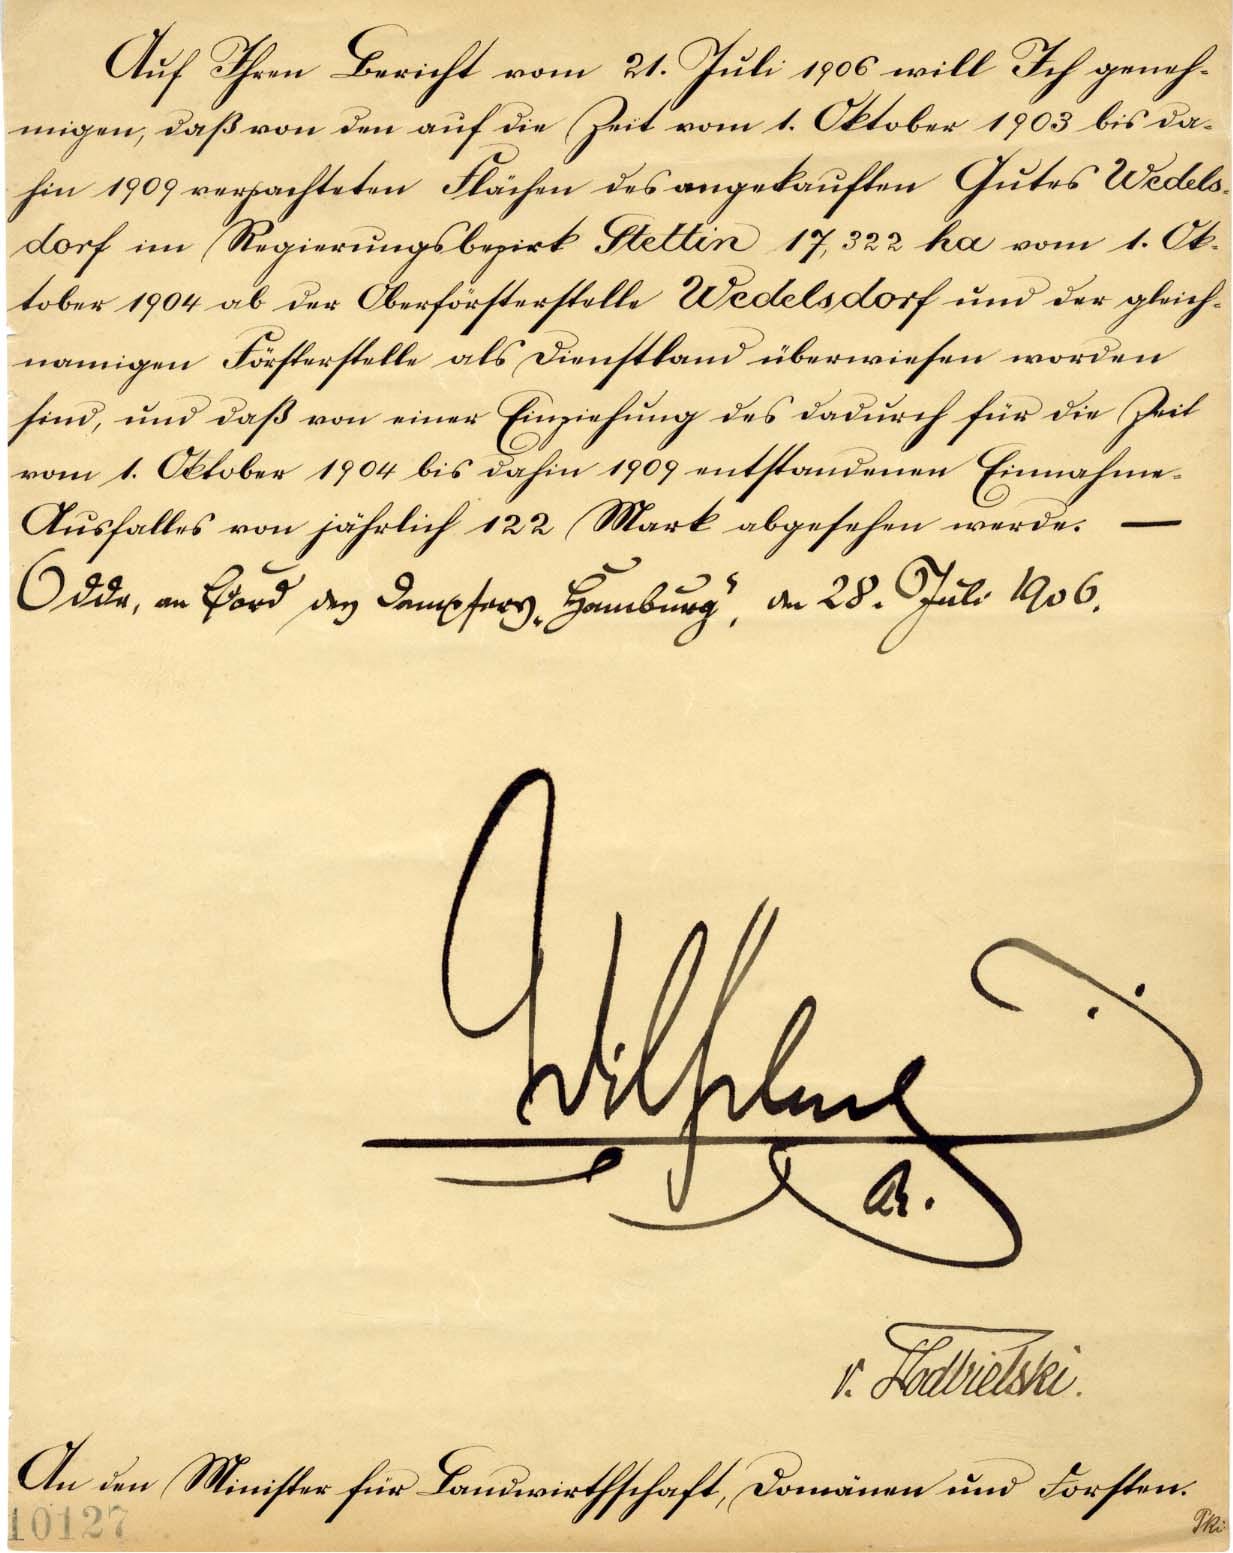 Auf Ihren Bericht vom 21. Juli 1906 will Ich geneh-
migen, daß von den auf die Zeit vom 1. Oktober 1903 bis da-
hin 1909 verpachteten Flächen des angekauften Gutes Wedels-
dorf im Regierungsbezirk Stettin 17,322 ha vom 1. Ok-
tober 1904 ab der Oberförsterstelle Wedelsdorf und der gleich-
namigen Försterstelle als Dienstland überwiesen worden
sind, und daß von einer Einziehung des dadurch für die Zeit
vom 1. Oktober 1904 bis dahin 1909 entstandenen Einnahme-
Ausfalles von jährlich 122 Mark abgesehen werde. —
Odde, an Bord des Dampfers „Hamburg“, den 28. Juli 1906.
Wilhelm
R.
v. Podbielski.
An den Minister für Landwirthschaft, Domänen und Forsten.
10127